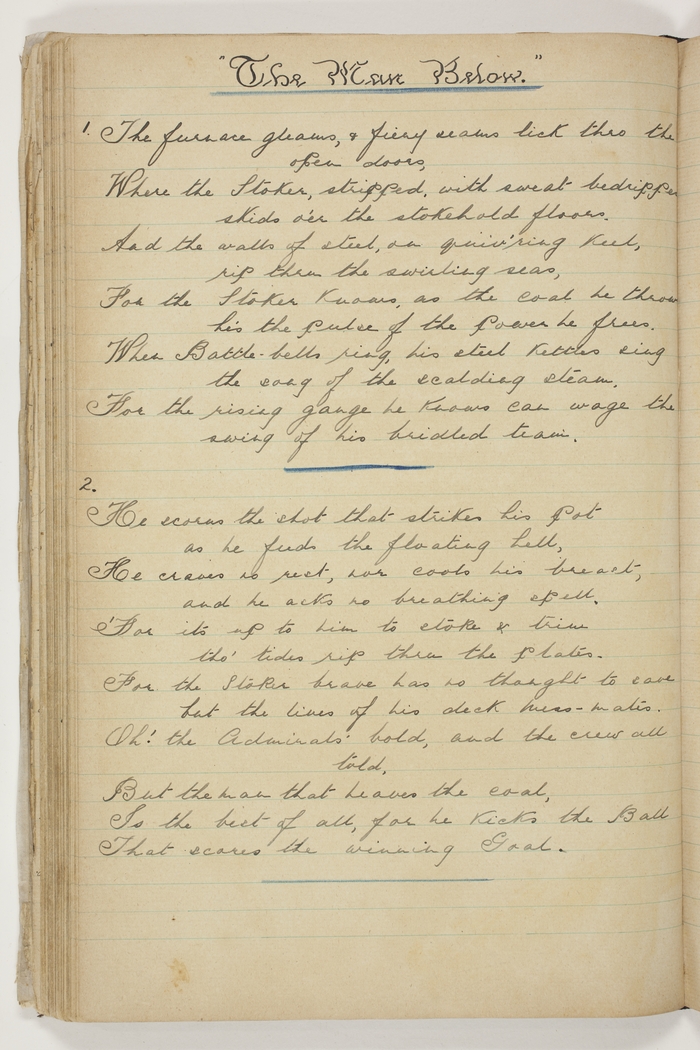 "The Man Below."
1. The furnace gleams, & fiery seams lick thro the
open doors,
Where the Stoker, stripped, with sweat bedripped
skids o'er the stokehold floors.
And the walls of steel, on quiv'ring keel,
rip thru the swirling seas,
For the Stoker Knows, as the coal he throws
his the pulse of the power he frees.
When Battle-bells ring, his steel kettles sing
the song of the scalding steam,
For the rising gauge he Knows can wage the
swing of his bridled team.
2.
He scorns the shot that strikes his pot
as he feeds the floating hell,
He craves no rest, nor cools his breast,
and he asks no breathing spell.
'For its up to him to stoke & trim
tho' tides rip thru the plates.
For the Stoker brave has no thought to save
but the lives of his deck mess-mates.
Oh! the Admirals' bold, and the crew all
told,
But the man that heaves the coal,
Is the best of all, for he kicks the Ball
That scores the winning Goal.